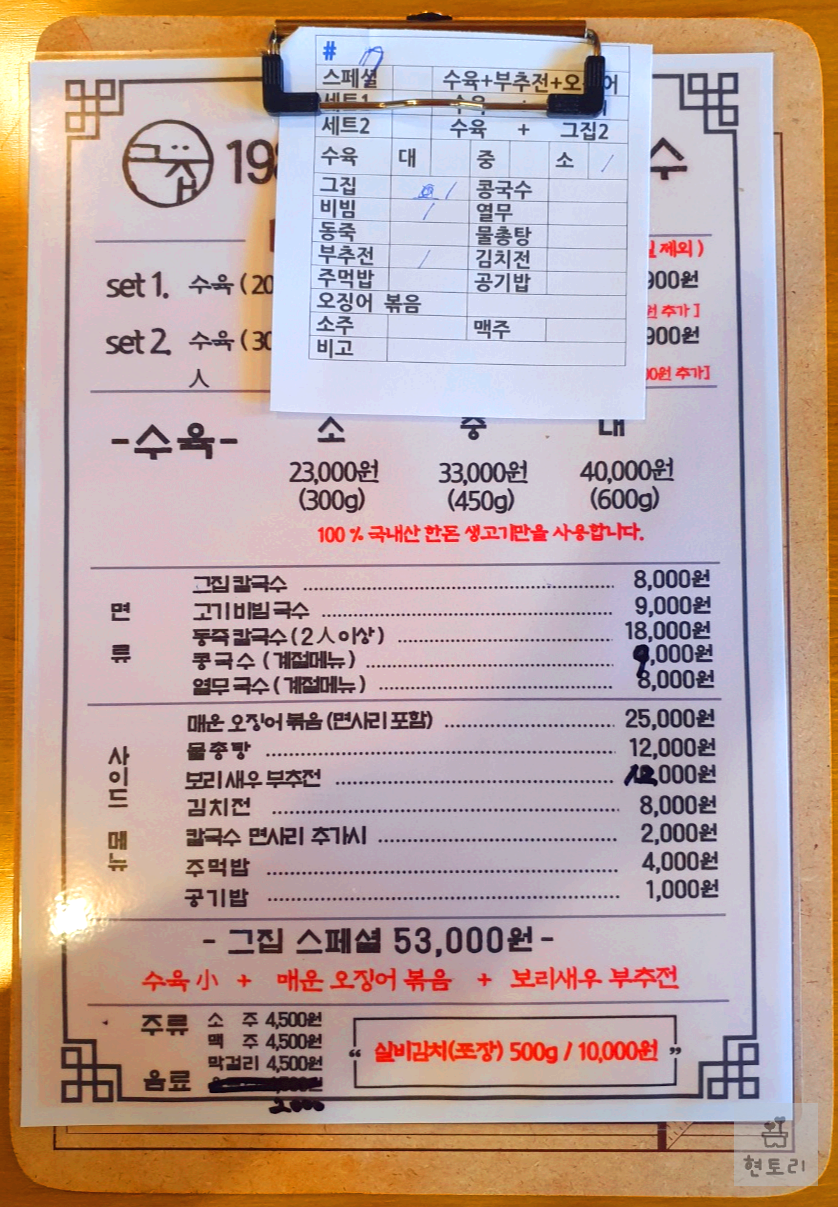 #
스페셜 수육+부추전+오징어
세트1
세트2 수육 + 그집2
수육 대 중 소 /
그집 / 콩국수
비빔 / 열무
동죽 물총탕
부추전 / 김치전
주먹밥 공기밥
오징어 볶음
소주 맥주
비고
그집 198 수
제외)
set 1. 수육 (20 900원
추가]
set 2. 수육 (30 900원
人 00원 추가]
-수육- 소 중 대
23,000원 33,000원 40,000원
(300g) (450g) (600g)
100 % 국내산 한돈 생고기만을 사용합니다.
면류
그집 칼국수 8,000원
고기비빔국수 9,000원
동죽 칼국수 (2人이상) 18,000원
콩국수 (계절메뉴) 9,000원
열무국수 (계절메뉴) 8,000원
사이드 메뉴
매운 오징어 볶음 (면사리 포함) 25,000원
물총탕 12,000원
보리새우 부추전 12,000원
김치전 8,000원
칼국수 면사리 추가시 2,000원
주먹밥 4,000원
공기밥 1,000원
- 그집 스페셜 53,000원 -
수육 小 + 매운 오징어 볶음 + 보리새우 부추전
주류 소 주 4,500원
맥 주 4,500원
막걸리 4,500원
음료 2000
“ 실비김치(포장) 500g / 10,000원 ”
현토리